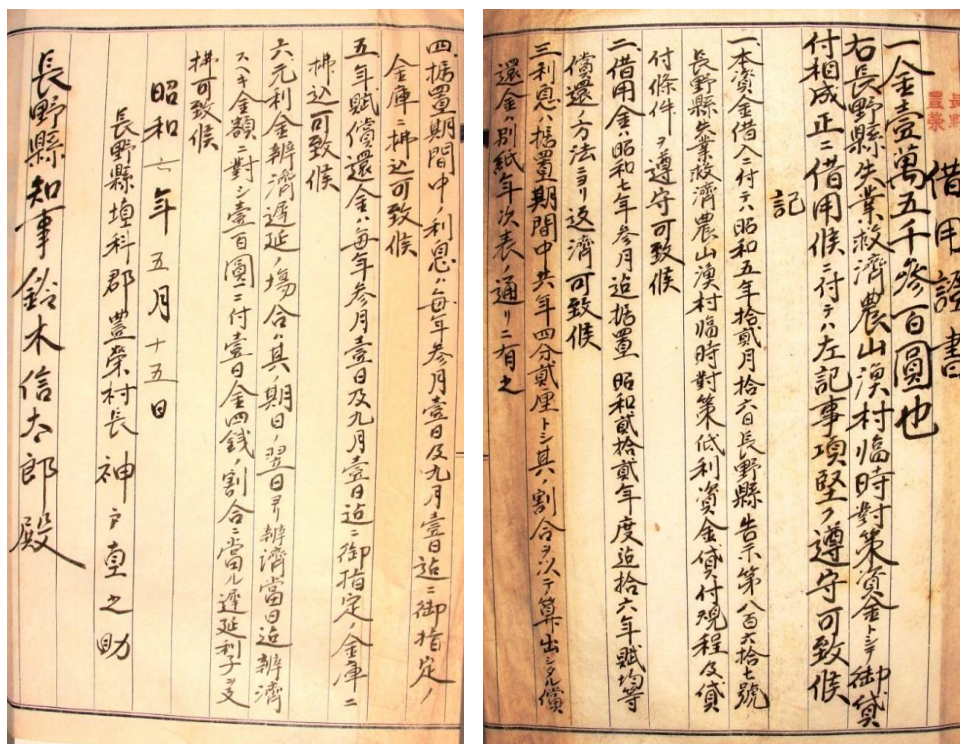 借用證書
一金壹萬五千參百圓也
右長野縣失業救濟農山漁村臨時對策資金トシテ御貸
付相成正ニ借用候ニ付テハ左記事項堅ク遵守可致候
記
一、本資金借入ニ付テハ昭和五年拾貳月拾六日長野縣告示第八百六拾七號
長野縣失業救濟農山漁村臨時對策低利資金貸付規程及貸
付條件ヲ遵守可致候
二、借用金ハ昭和七年參月迠据置昭和貳拾貳年度迠拾六年賦均等
償還ノ方法ニヨリ返濟可致候
三、利息ハ据置期間中共年四分貳厘トシ其ノ割合ヲ以テ算出シタル償
還金ハ別紙年次表ノ通リニ有之
四、据置期間中ノ利息ハ每年參月壹日及九月壹日迠ニ御指定ノ
金庫ニ拂込可致候
五、年賦償還金ハ每年參月壹日及九月壹日迠ニ御指定ノ金庫ニ
拂込可致候
六、元利金辨濟遲延ノ場合ハ其ノ期日ノ翌日ヨリ辨濟當日迠辨濟
スヘキ金額ニ對シ壹百圓ニ付壹日金四錢ノ割合ニ當ル遲延利子ヲ支
拂可致候
昭和六年五月十五日
長野縣埴科郡豐榮村長神戸直之助
長野縣知事鈴木信太郎殿